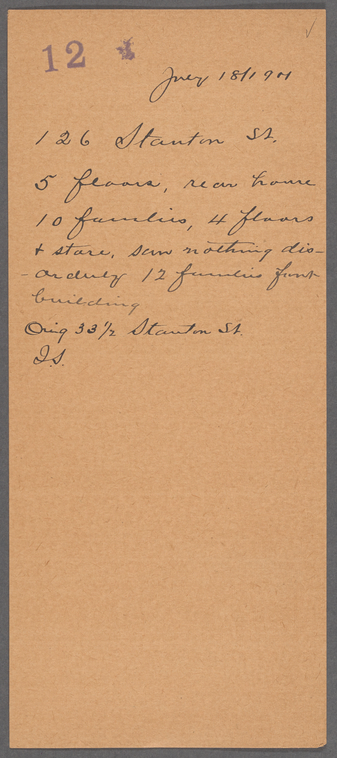 12
July 18/1901
126 Stanton St.
5 floors, rear house
10 families, 4 floors
& store, saw nothing dis-
-orderly 12 families front
building
33 1/2 Stanton St.